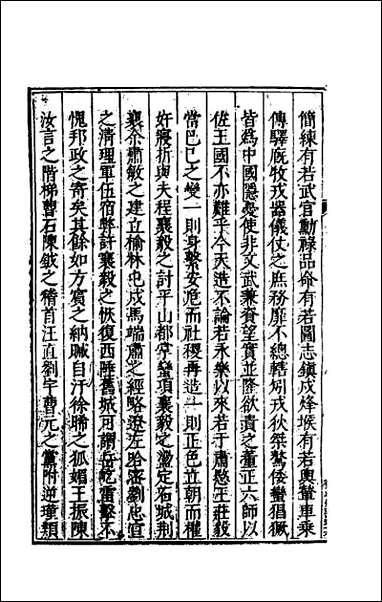 簡練有若武官勳祿品命有若圖志鎮戍烽堠有若輿輦車乘
傳驛廐牧戎器儀仗之庶務靡不總轄矧戎狄桀驁倭蠻猖獗
皆為中國隱憂使非文武兼資望實並隆欲責之董正六師以
佐王國不亦難乎今天造不論若永樂以來若于肅愍王莊毅
當己巳之變一則身繫安危而社稷再造一則正色立朝而權
奸寢折與夫程襄毅之計平山都掌蠻項襄毅之盪定石城荆
襄余肅敏之建立榆林屯戍馬端肅之經略遼左哈密劉忠宣
之清理軍伍宿弊計襄毅之恢復西陲舊城可謂岳屹雷擊不
愧邦政之寄矣其餘如方賓之納賕自汙徐晞之狐媚王振陳
汝言之階梯曹石陳鉞之稽首汪直劉宇曹元之黨附逆瑾類